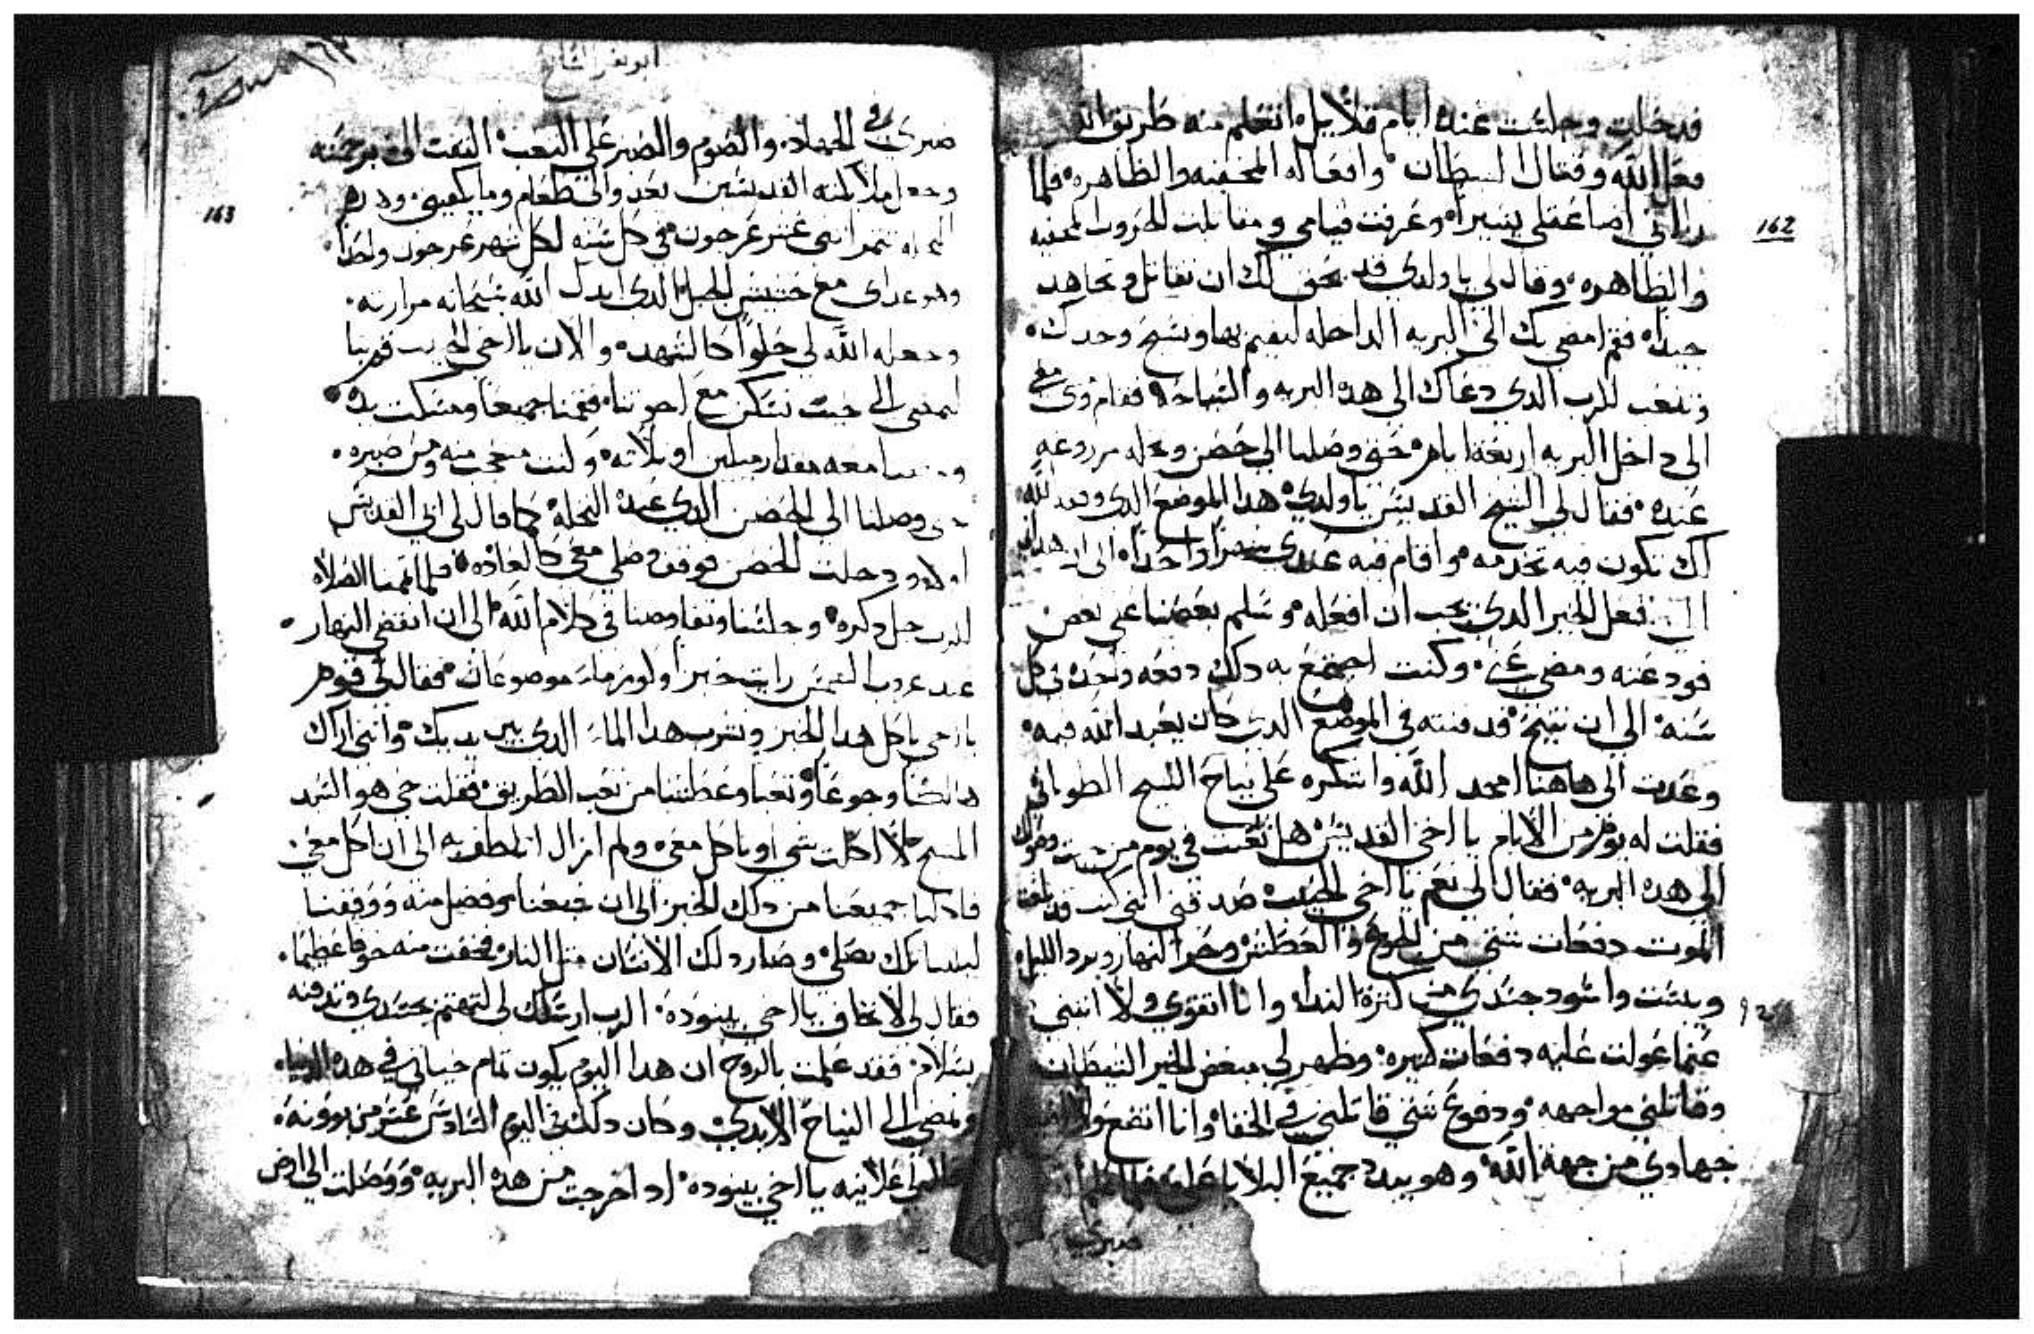 162
فدخلت وجلست عنده ايام قلايل اتعلم منه طريق
فعل الله وقتال الشيطان وافعاله المخفيه والظاهره فلما
راني اضا عقلي يسيرا وعرفت قيامي ومقابلت الحروب المخفيه
والظاهره وقال لي يا ولدي قد يحق لك ان تقاتل وتجاهد
جيدا فقم امضي بك الى البريه الداخله لتقيم بها وتسيح وحدك
وتتعب للرب الذي دعاك الى هذه البريه والسياحه فقام وى معي
الى داخل البريه اربعة ايام حتى وصلنا الى خصن ونخله مزروعه
عنده فقال لي الشيخ القديس يا ولدي هذا الموضع الدي وعد الله
لك تكون فيه تخدمه واقام فيه عندي شهرا واحدا الى ان
فعل الخير الدي يجب ان افعله وسلم بعضنا على بعض
فودعته ومضى عني وكنت اجتمع به دلك دفعه واحده في كل
سنه الى ان تنيح فدفنته في الموضع الدي كان يعبد الله فيه
وعدت الى هاهنا امجد الله واشكره على نياح الشيخ الطوباني
فقلت له يوم من الايام يا اخي القديس هل تعبت في يوم من
الى هذه البريه فقال لي نعم يا اخي الحبيب صدقني انني كنت قد بلغت
الموت دفعات شتى من الجوع والعطش وحر النهار وبرد الليل
ويبست واسود جسدي من كترة الندا وانا اتقوى ولا انثني
عنما عولت عليه دفعات كتيره وظهر لي مبغض الخير الشيطان
وقاتلني مواجهه ودفوع شتى قاتلني في الخفا وانا اتضع
جهادي من جهة الله وهو يبدد جميع البلايا عني فلما
صبري
ابو نفر السايح
163
صبري في الجهاد والصوم والصبر على التعب التفت الي برحمته
وجعل ملايكته القديسين تعد والي طعام وما يكفيني وهذه
النخله تتمر اتنى عشر عرجون في كل سنه لكل شهر عرجون واحدا
وهو غداى مع حشيش الجبل الدي ابدل الله سبحانه مرارته
وجعله الله لي حلوا كالشهده والان يا اخي الحبيب قم بنا
لنمضي الى حيث نسكن مع اخوتنا فقمنا جميعا ومسكت بيده
ومشينا معه مقدار ميلين او تلاته وكنت متعجب منه ومن صبره
حتى وصلنا الى الخصن الدي عنده النخلة كما قال لي ابي القديس
اولا ودخلت الخصن فوقف وصلى معي كالعاده فلما تممنا الصلاه
للرب جل دكره وجلسنا وتفاوضنا في كلام الله الى ان انقضى النهار
عند غروب الشمس رايت خبز او كوز ماء موضوعان فقال لي قوم
يا اخي ناكل هدا الخبز ونشرب هدا الماء الدي بين يديك وانني اراك
هالكا وجوعا وتعبا وعطشا من تعب الطريق فقلت حي هو السيد
المسيح لا اكلت شي او تاكل معي ولم ازال اتلطف به الى ان اكل معي
فاكلنا جميعنا من دلك الخبز الى ان شبعنا وفضل منه ووقفنا
ليلتنا تلك نصلي وصار دلك الانسان متل النار فخفت منه خوفا عظيما
فقال لي لا تخاف يا اخي ببنوده الرب ارسلك لي لتهتم بجسدي وتدفنه
بسلام فقد علمت بالروح ان هدا اليوم يكون تمام حياتي في هده الدنيا
ونمضي الى النياح الابدي وكان دلك في اليوم السادس عشر من بوونه
علانيه يا اخي ببنوده ادا خرجت من هده البريه ووصلت الى ارض